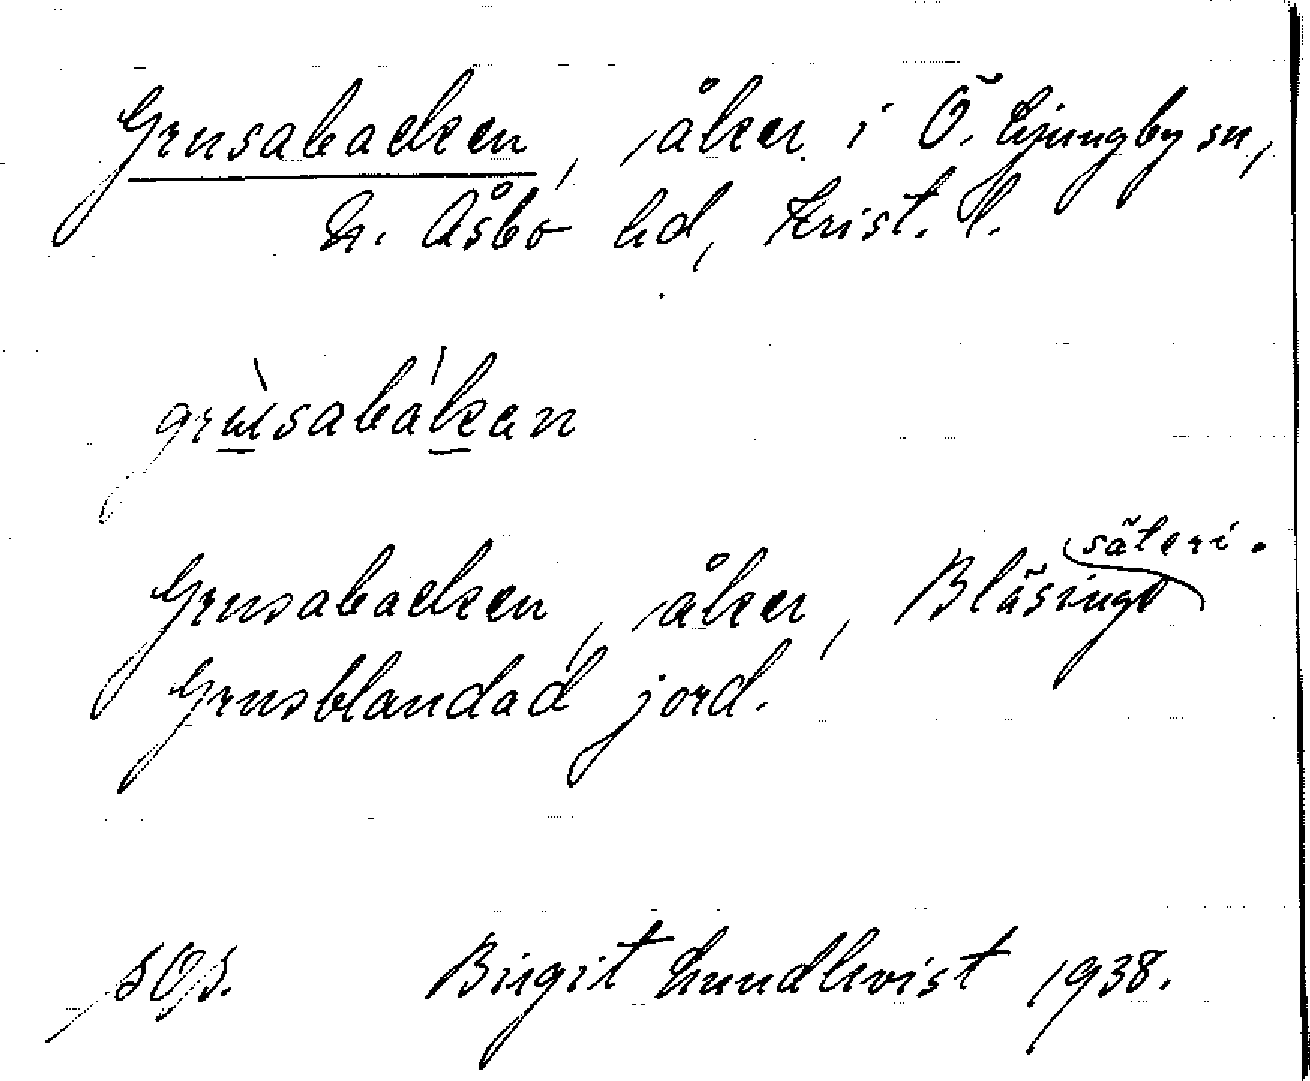 Grusabacken, åker i Ö. Ljungby sn,
N. Åsbo hd, Krist. l.
grusabakan
Grusabacken, åker, Bläsinge säteri.
Grusblandad jord.
Birgit Lundkvist 1938.